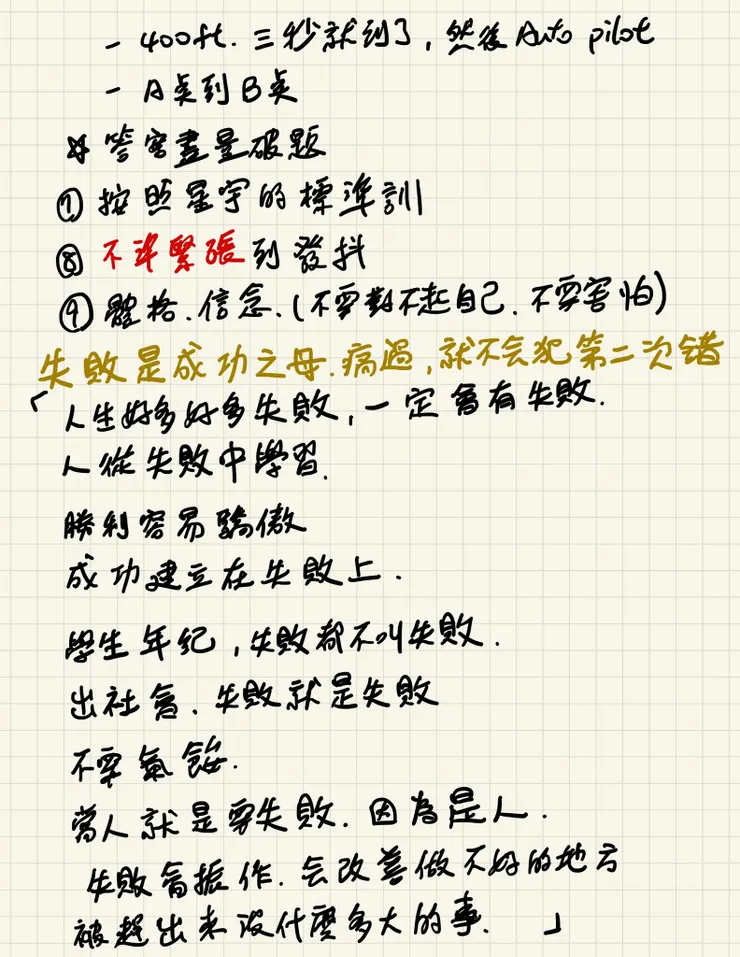 - 400ft. 三秒就到了, 然後 Auto pilot
- A点到B点
* 答案盡量破題
⑦ 按照星宇的標準訓
⑧ 不準緊張到發抖
⑨ 體格. 信念. (不要對不起自己. 不要害怕)
失敗是成功之母. 痛過, 就不会犯第二次錯
「人生好多好多失敗, 一定會有失敗.
人從失敗中學習.
勝利容易驕傲
成功建立在失敗上.
學生年纪, 失敗都不叫失敗.
出社會. 失敗就是失敗
不要氣餒.
當人就是要失敗. 因為是人.
失敗會振作. 会改善做不好的地方
被趕出来没什麼多大的事. 」